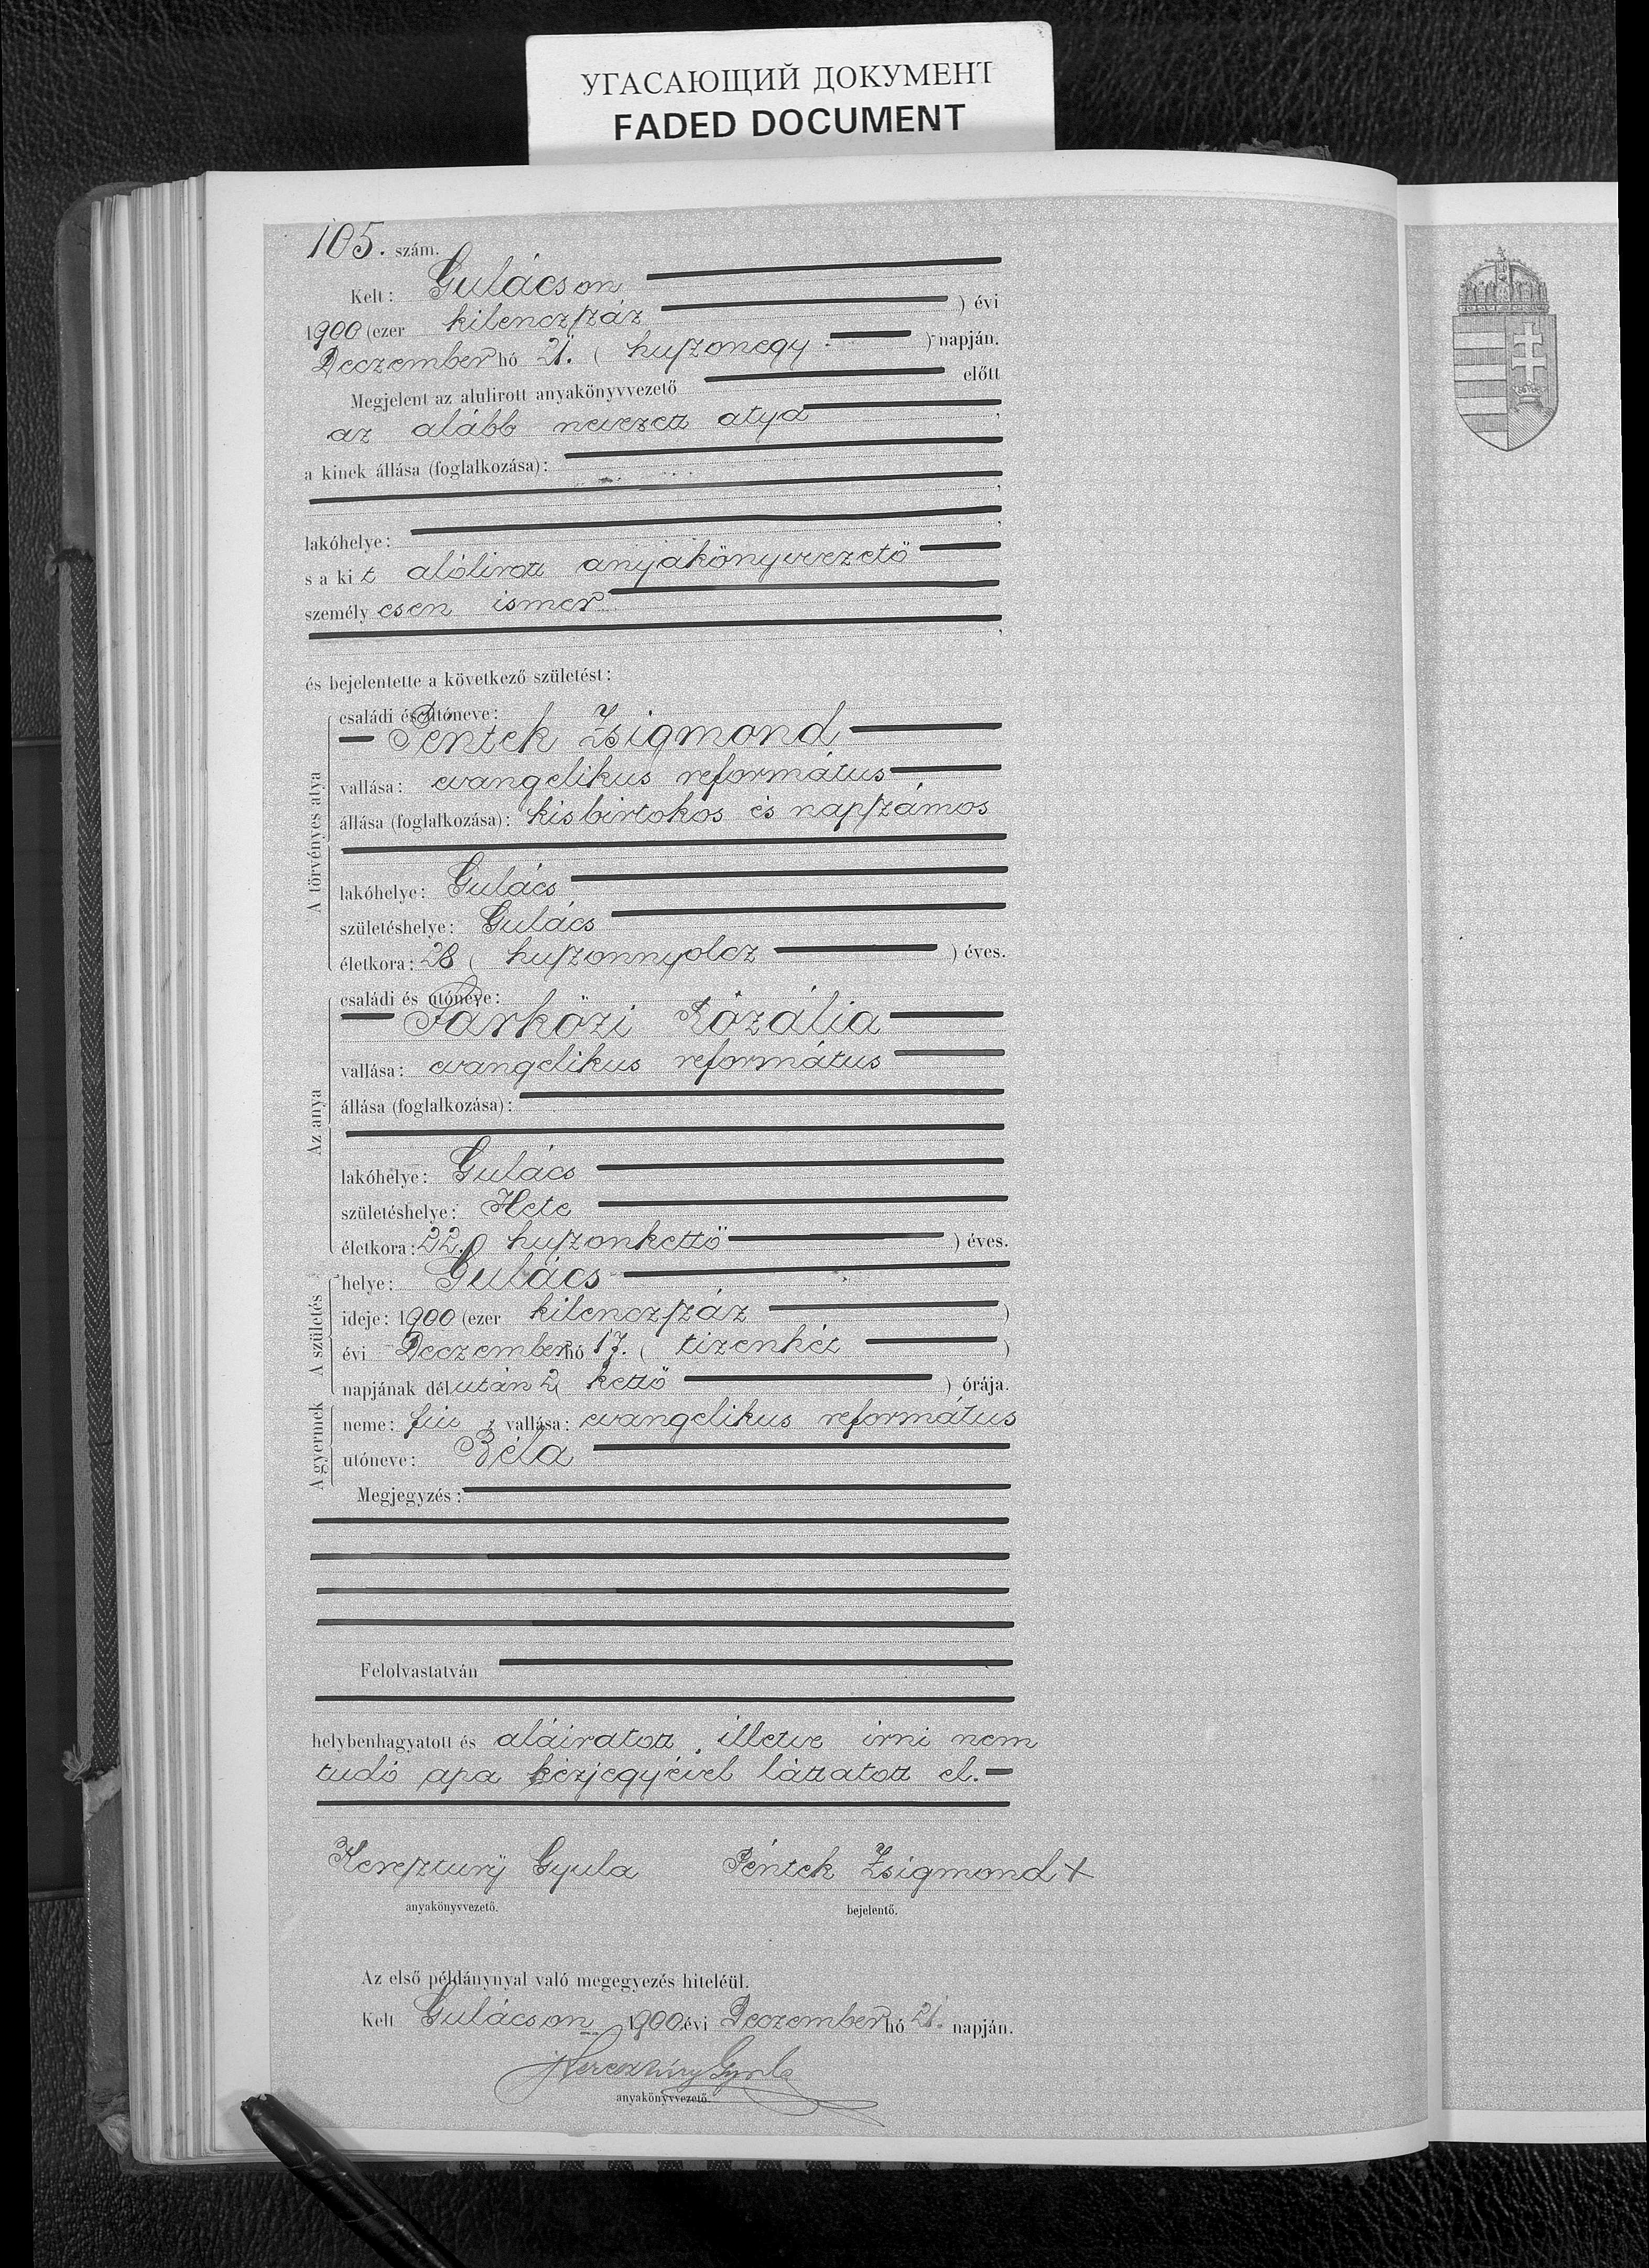 УГАСАЮЩИЙ ДОКУМЕНТ
FADED DOCUMENT
105. szám.
Kelt: Gulácson
1900 (ezer kilenczszáz ) évi
Deczember hó 21. ( huszonegy ) napján.
Megjelent az alulirott anyakönyvvezető előtt
az alább nevezett atya ,
a kinek állása (foglalkozása):
,
lakóhelye: ,
s a kit alólirott anyakönyvvezető
személyesen ismer
,
és bejelentette a következő születést:
A törvényes atya
családi és utóneve:
Péntek Zsigmond
vallása: evangelikus református
állása (foglalkozása): kisbirtokos és napszámos
lakóhelye: Gulács
születéshelye: Gulács
életkora: 28 ( huszonnyolcz ) éves.
Az anya
családi és utóneve:
Parközi Rózália
vallása: evangelikus református
állása (foglalkozása):
lakóhelye: Gulács
születéshelye: Hete
életkora: 22. ( huszonkettő ) éves.
A születés
helye: Gulács
ideje: 1900 (ezer kilenczszáz )
évi Deczember hó 17. ( tizenhét )
napjának délután 2 ( kettő ) órája.
A gyermek
neme: fiú ; vallása: evangelikus református
utóneve: Béla
Megjegyzés:
Felolvastatván
helybenhagyatott és aláiratott, illetve irni nem
tudó apa kézjegyével láttatott el.
Keresztury Gyula Péntek Zsigmond +
anyakönyvvezető. bejelentő.
Az első példánynyal való megegyezés hiteléül.
Kelt Gulácson 1900 évi Deczember hó 21. napján.
Keresztúry Gyula
anyakönyvvezető.